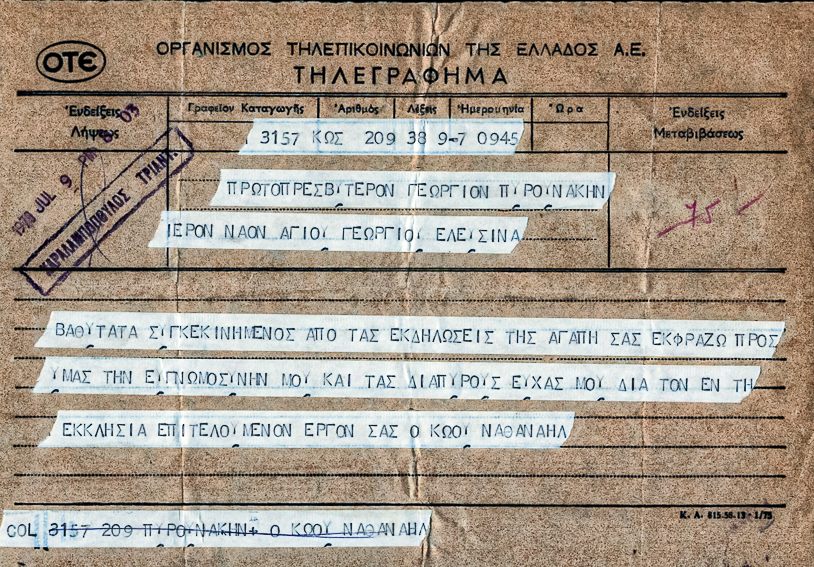 ΟΤΕ
ΟΡΓΑΝΙΣΜΟΣ ΤΗΛΕΠΙΚΟΙΝΩΝΙΩΝ ΤΗΣ ΕΛΛΑΔΟΣ Α.Ε.
ΤΗΛΕΓΡΑΦΗΜΑ
Ἐνδείξεις Λήψεως
Γραφεῖον Καταγωγῆς Ἀριθμὸς Λέξεις Ἡμερομηνία Ὥρα
Ἐνδείξεις Μεταβιβάσεως
3157 ΚΩΣ 209 38 9-7 0945
JUL 9 PM 8 03
ΧΑΡΑΛΑΜΠΟΠΟΥΛΟΣ ΤΡΙΑΝΤ.
ΠΡΩΤΟΠΡΕΣΒΥΤΕΡΟΝ ΓΕΩΡΓΙΟΝ ΠΥΡΟΥΝΑΚΗΝ
75 -
ΙΕΡΟΝ ΝΑΟΝ ΑΓΙΟΥ ΓΕΩΡΓΙΟΥ ΕΛΕΥΣΙΝΑ
ΒΑΘΥΤΑΤΑ ΣΥΓΚΕΚΙΝΗΜΕΝΟΣ ΑΠΟ ΤΑΣ ΕΚΔΗΛΩΣΕΙΣ ΤΗΣ ΑΓΑΠΗ ΣΑΣ ΕΚΦΡΑΖΩ ΠΡΟΣ
ΥΜΑΣ ΤΗΝ ΕΥΓΝΩΜΟΣΥΝΗΝ ΜΟΥ ΚΑΙ ΤΑΣ ΔΙΑΠΥΡΟΥΣ ΕΥΧΑΣ ΜΟΥ ΔΙΑ ΤΟΝ ΕΝ ΤΗ
ΕΚΚΛΗΣΙΑ ΕΠΙΤΕΛΟΥΜΕΝΟΝ ΕΡΓΟΝ ΣΑΣ Ο ΚΩΟΥ ΝΑΘΑΝΑΗΛ
Κ. Α. 815.58.13 - 1/75
COL 3157 209 ΠΥΡΟΥΝΑΚΗΝ+ Ο ΚΩΟΥ ΝΑΘΑΝΑΗΛ